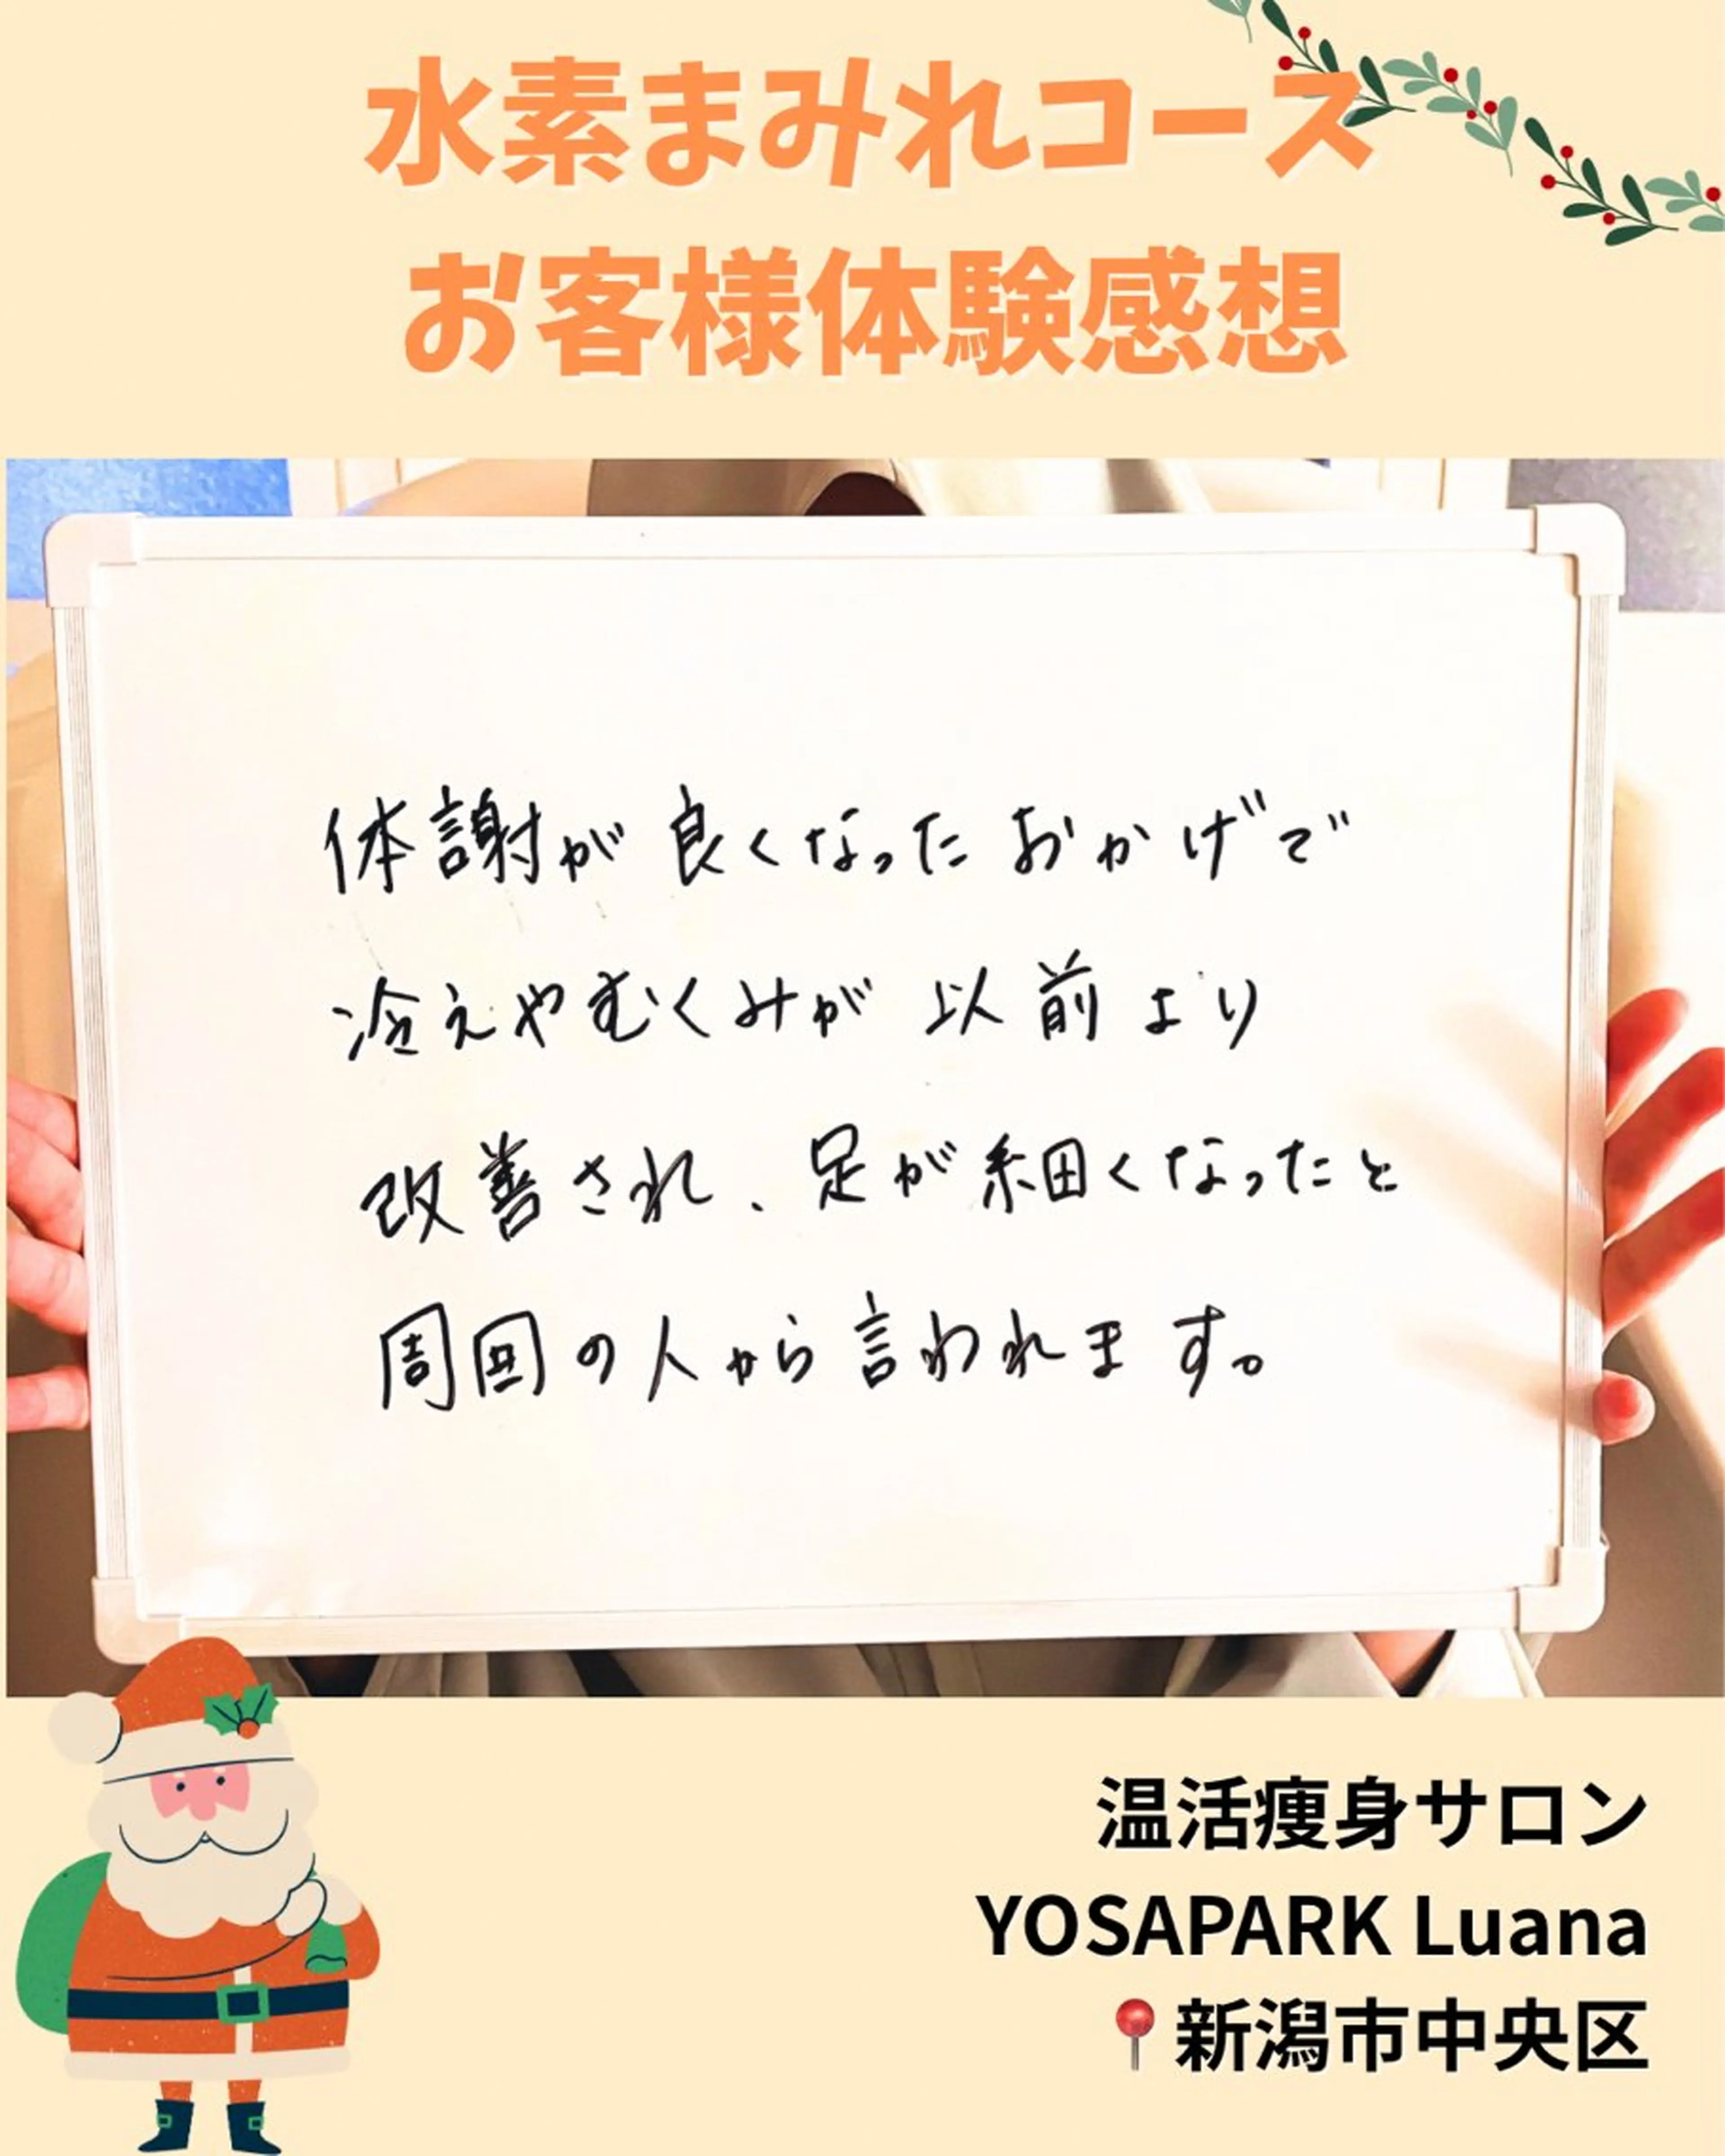 水素まみれコース
お客様体験感想
体謝が良くなったおかげで
冷えやむくみが以前より
改善され、足が細くなったと
周囲の人から言われます。
温活痩身サロン
YOSAPARK Luana
📍新潟市中央区